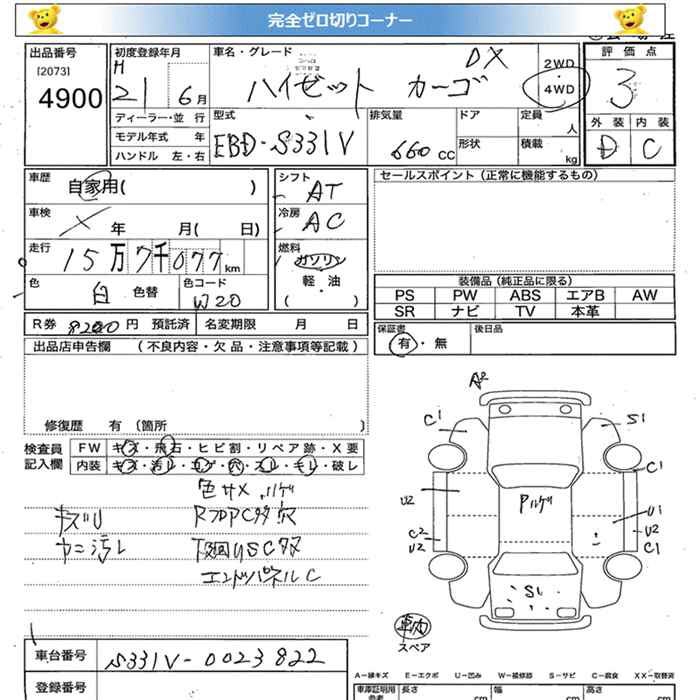 完全ゼロ切りコーナー
出品番号
[2073]
4900
初度登録年月
H
21 6月
ディーラー・並 行
モデル年式 年
ハンドル 左・右
車名・グレード
ハイゼット カーゴ DX
2WD
4WD
型式
EBD-S331V
排気量
660 cc
ドア
形状
定員
人
積載
kg
評 価 点
3
外 装 内 装
D C
車歴
自家用( )
車検
年 月( 日)
走行
15万7千077km
色
白 色替
色コード
W20
シフト
AT
冷房
AC
燃料
ガソリン
軽・油
( )
セールスポイント(正常に機能するもの)
装備品(純正品に限る)
PS PW ABS エアB AW
SR ナビ TV 本革
R券 8200円 預託済 名変期限 月 日
保証書
有・無
後日品
出品店申告欄 (不良内容・欠品・注意事項等記載)
修復歴 有 〔箇所 〕
検査員
記入欄
FW キズ・飛石・ヒビ割・リペア跡・X要
内装 キズ・汚レ・コゲ・穴・スレ・キレ・破レ
キズU
ヤニ汚レ
エンドパネルC
A2
C1
S1
C1
U2
U1
C2
U2
U2
C1
S1
車内
スペア
車台番号
S331V-0023822
登録番号
A-線キズ E-エクボ U-凹み W-補修跡 S-サビ C-腐食 XX-取替済
車庫証明用
参考
長さ
cm
幅
cm
高さ
cm